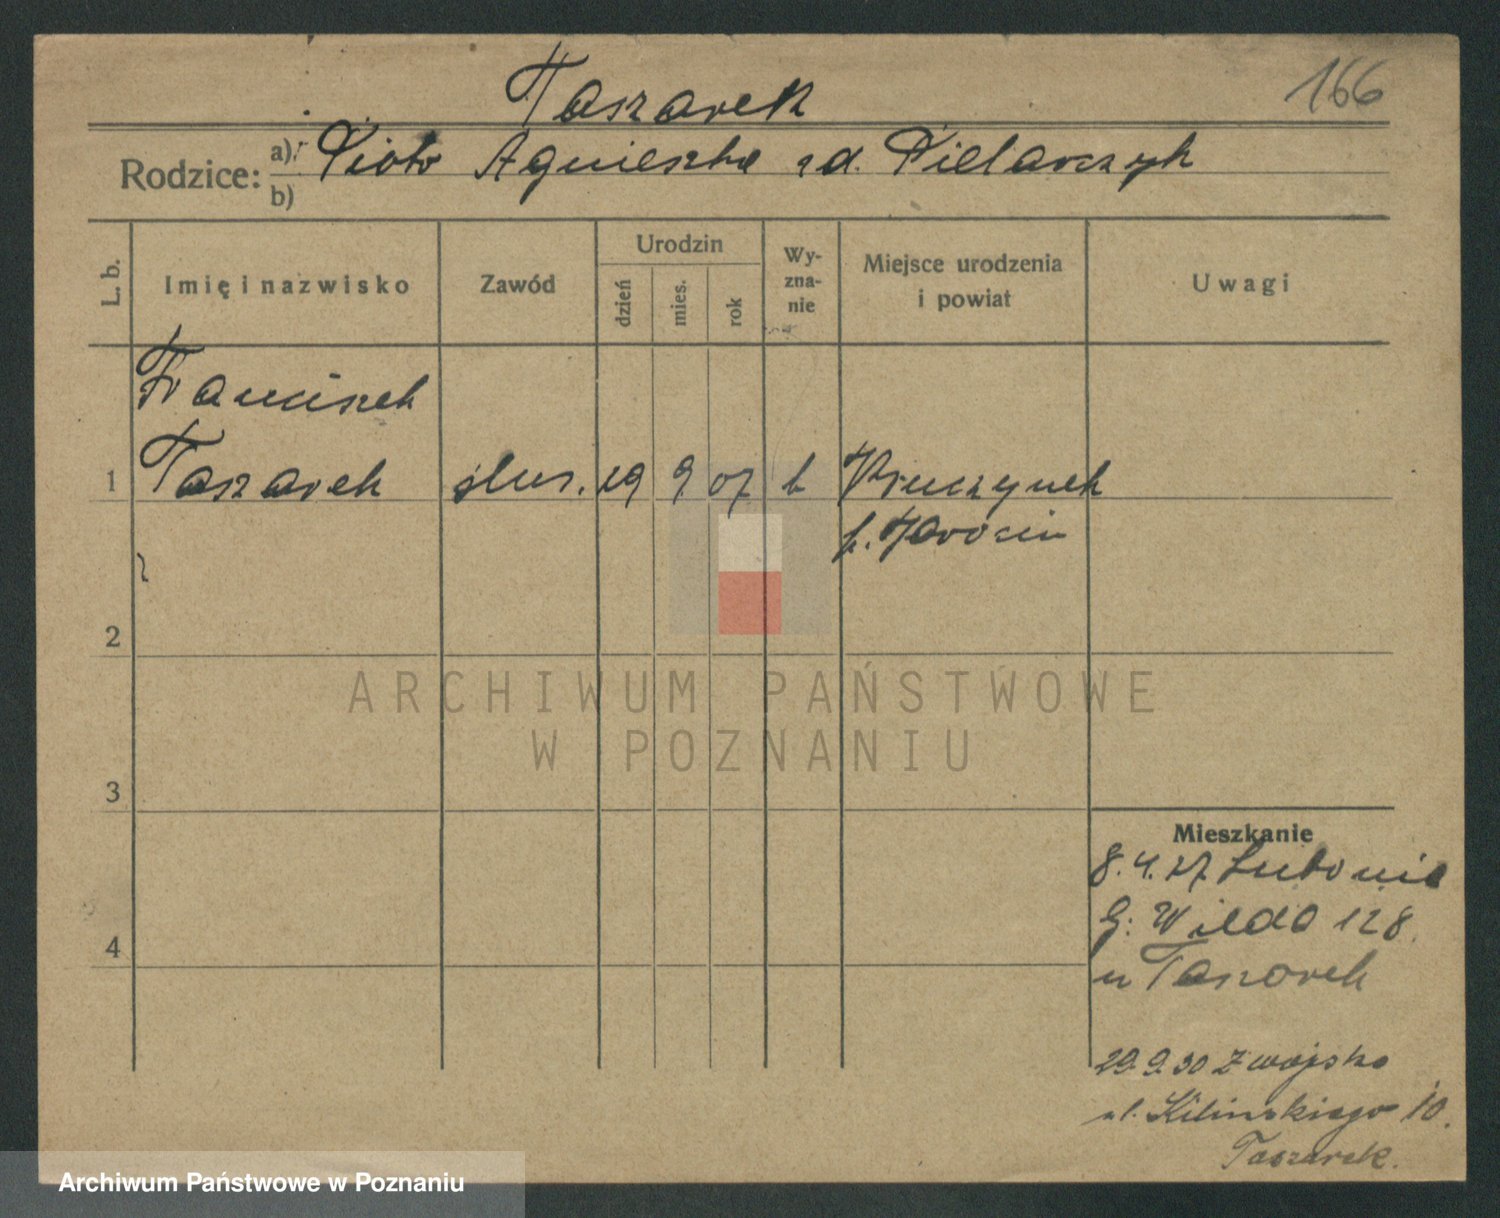 166
Taszarek
Rodzice: a) Piotr Agnieszka zd. Pielarczyk
b)
L. b. Imię i nazwisko Zawód Urodzin dzień mies. rok Wy-zna-nie Miejsce urodzenia i powiat Uwagi
Franciszek
1 Taszarek ślus. 29 9 07 k
p. Jarocin
2
ARCHIWUM PAŃSTWOWE
W POZNANIU
3
Mieszkanie
8.4.27 Lubonia
G: Wilda 128.
4
u Taszarek
29.9.30 z wojska
ul. Kilinskiego 10.
Taszarek.
Archiwum Państwowe w Poznaniu